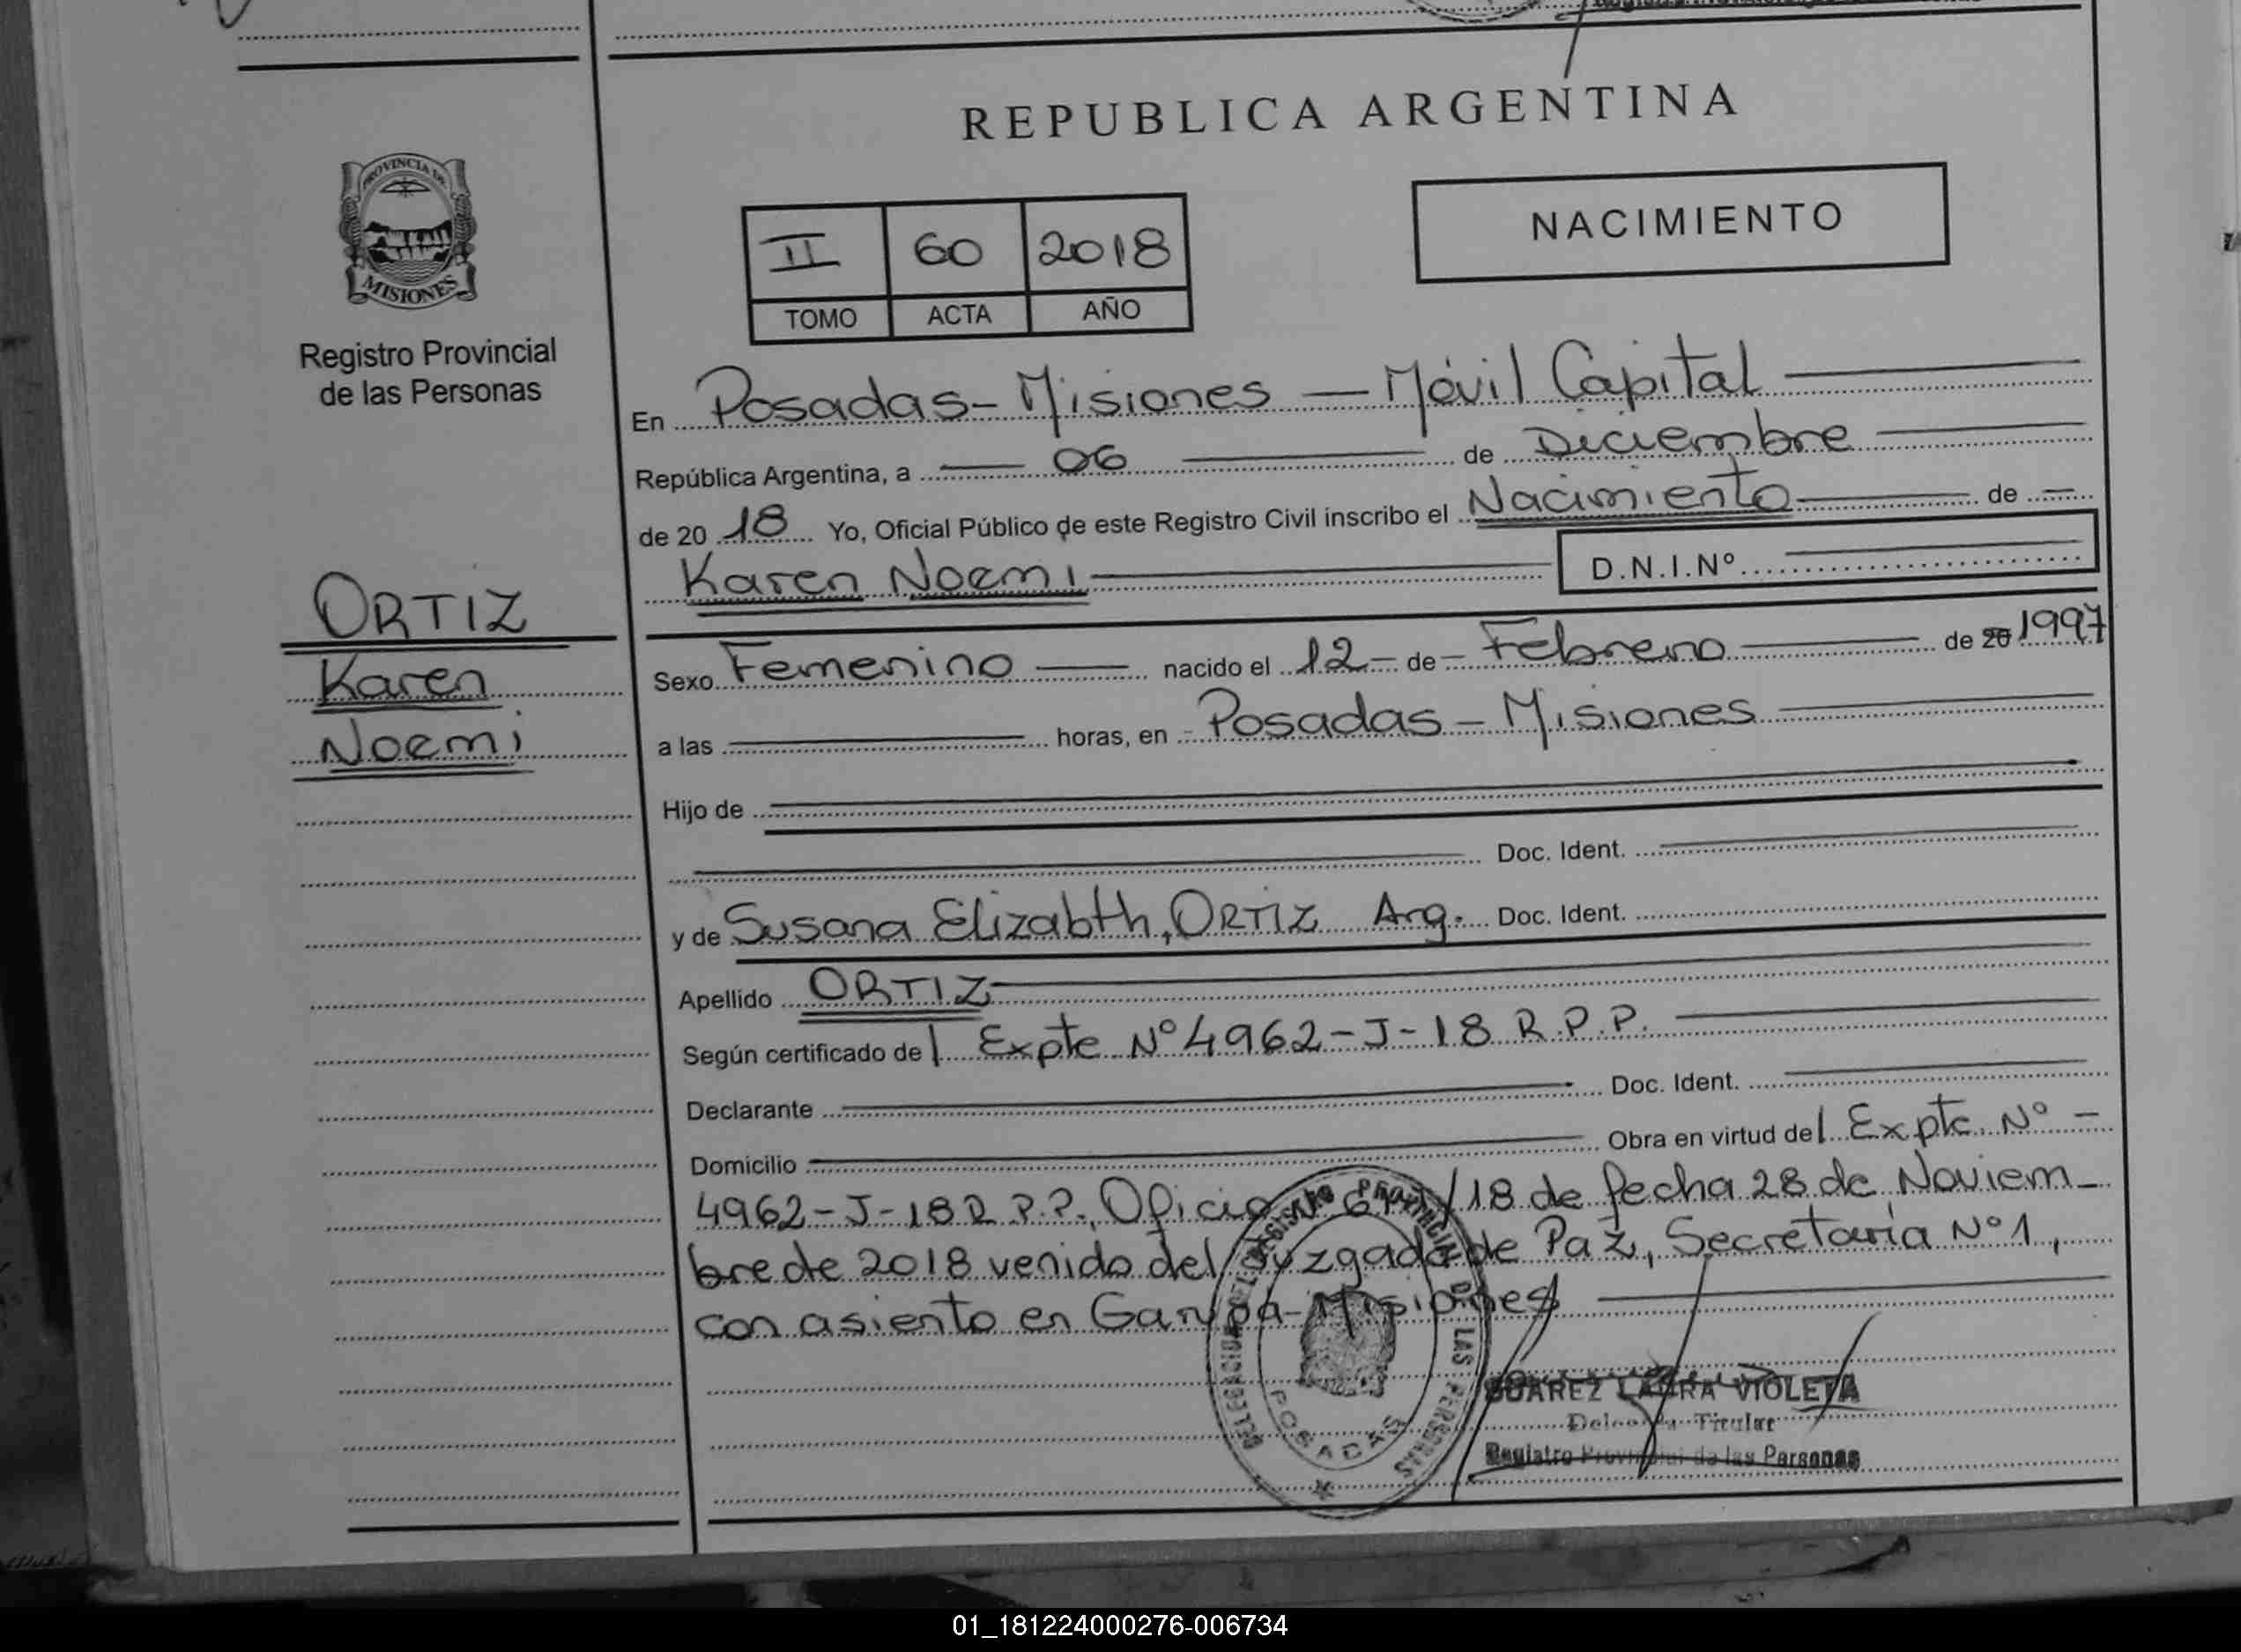 REPUBLICA ARGENTINA
PROVINCIA DE
MISIONES
Registro Provincial
de las Personas
II 60 2018
TOMO ACTA AÑO
NACIMIENTO
En Posadas - Misiones — Móvil Capital
República Argentina, a 06 de Diciembre
de 20 18 Yo, Oficial Público de este Registro Civil inscribo el Nacimiento de
Karen Noemi D.N.I.Nº
ORTIZ
Karen
Noemi
Sexo Femenino nacido el 12 de Febrero de 20 1997
a las horas, en Posadas - Misiones
Hijo de
Doc. Ident.
y de Susana Elizabth, ORTIZ Arg. Doc. Ident.
Apellido ORTIZ
Según certificado del Expte Nº 4962-J-18 R.P.P.
Declarante Doc. Ident.
Domicilio Obra en virtud del Expte. Nº -
4962-J-18 R.P.P., Oficio /18 de fecha 28 de Noviem-
bre de 2018 venido del Juzgado de Paz, Secretaría Nº 1,
con asiento en Garupa-Misiones
DELEGACION DEL REGISTRO PROVINCIAL DE LAS PERSONAS
POSADAS
SUAREZ LAURA VIOLETA
Delegada Titular
Registro Provincial de las Personas
01_181224000276-006734